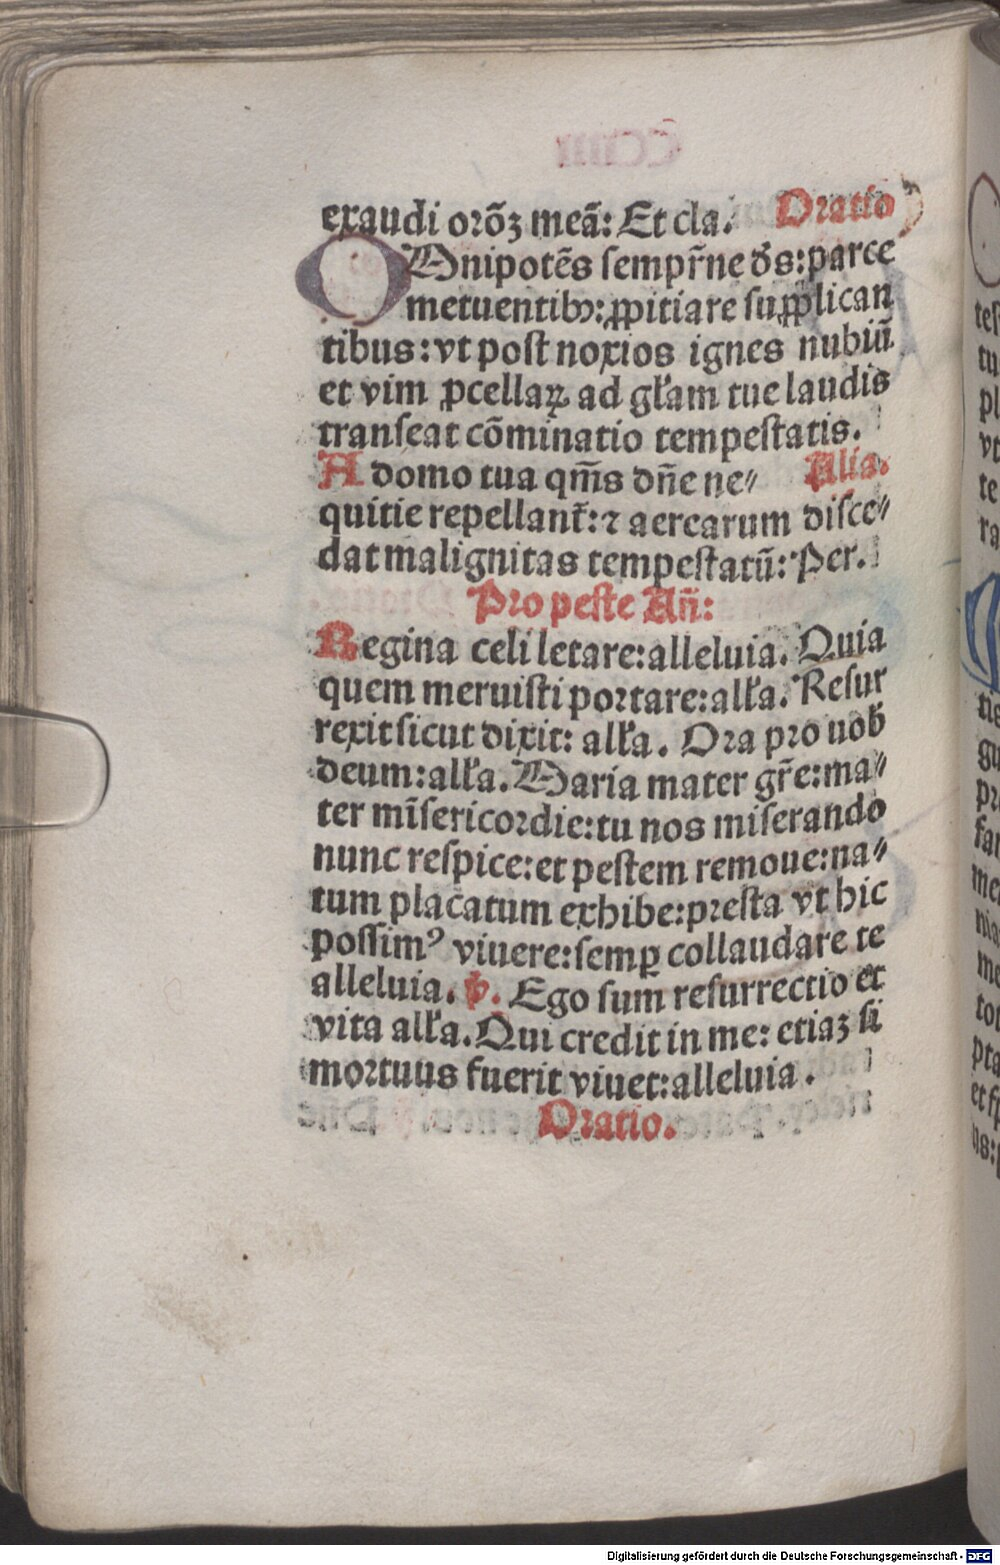 exaudi orõꝫ meã: Et cla. Oratio
OMnipotẽs sempr̃ne ds̃: parce
metuentibꝰ: ꝓpitiare supplican
tibus: vt post noxios ignes nubiũ
et vim ꝓcellaꝝ ad gl̃am tue laudis
transeat cõminatio tempestatis.
A domo tua qm̃s dñe ne⸗ Alia.
quitie repellant̃: ⁊ aerearum disce⸗
dat malignitas tempestatũ: Per.
Pro peste Añ:
Regina celi letare: alleluia. Quia
quem meruisti portare: alľa. Resur
rexit sicut dixit: alľa. Ora pro nob̃
deum: alľa. Maria mater gr̃e: ma⸗
ter mĩsericordie: tu nos miserando
nunc respice: et pestem remoue: na⸗
tum placatum exhibe: presta vt hic
possimꝰ viuere: semꝑ collaudare te
alleluia. ℣. Ego sum resurrectio et
vita alľa. Qui credit in me: etiaꝫ si
mortuus fuerit viuet: alleluia.
Oratio.
Digitalisierung gefördert durch die Deutsche Forschungsgemeinschaft - DFG